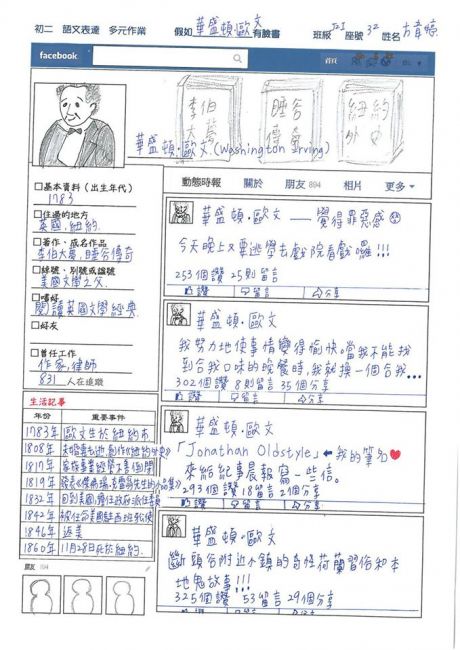 初二 語文表達 多元作業 假如 華盛頓·歐文 有臉書 班級 座號 32 姓名
facebook
首頁
李伯大夢
睡谷傳奇
紐約外史
華盛頓·歐文(Washington Irving)
動態時報 關於 朋友 894 相片 更多
□基本資料(出生年代)
1783
□住過的地方
英國,紐約
□著作、成名作品
李伯大夢,睡谷傳奇
□綽號、別號或諡號
美國文學之父
□嗜好
閱讀英國文學經典
□好友
□曾任工作
作家,律師
831 人在追蹤
生活記事
年份 重要事件
1783年 歐文生於紐約市
1808年
1817年 家族事業經營不善倒閉
1819年
1832年
1842年 被任命美國駐西班牙
1846年 返美
1860年 11月28日於紐約
朋友 894
華盛頓·歐文 —— 覺得罪惡感
今天晚上又要逃學去戲院看戲囉!!!
253個讚 25則留言
讚 留言 分享
華盛頓·歐文
我努力地使事情變得愉快。當我不能找
到合我口味的晚餐時,我就換一個合我...
302個讚 8則留言 35個分享
讚 留言 分享
華盛頓·歐文
「Jonathan Oldstyle」←我的筆名
來給紀事晨報寫一些信。
293個讚 18留言 21個分享
讚 留言 分享
華盛頓·歐文
斷頭谷附近小鎮的奇怪荷蘭習俗和本
地鬼故事!!!
325個讚 53留言 29個分享